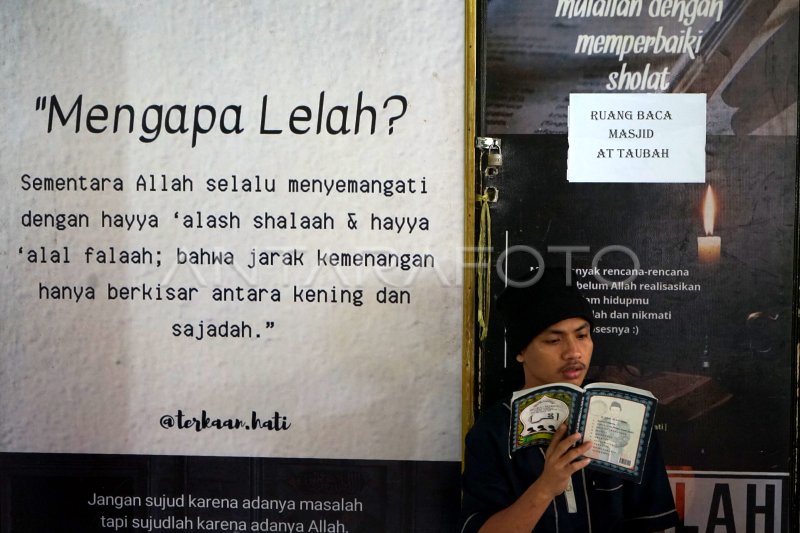 "Mengapa Lelah?
Sementara Allah selalu menyemangati
dengan hayya ‘alash shalaah & hayya
‘alal falaah; bahwa jarak kemenangan
hanya berkisar antara kening dan
sajadah.”
@terkaan.hati
Jangan sujud karena adanya masalah
tapi sujudlah karena adanya Allah.
mulailah dengan
memperbaiki
sholat
RUANG BACA
MASJID
AT TAUBAH
anyak rencana-rencana
belum Allah realisasikan
am hidupmu
lah dan nikmati
osesnya :)
LAH
ANTARAFOTO